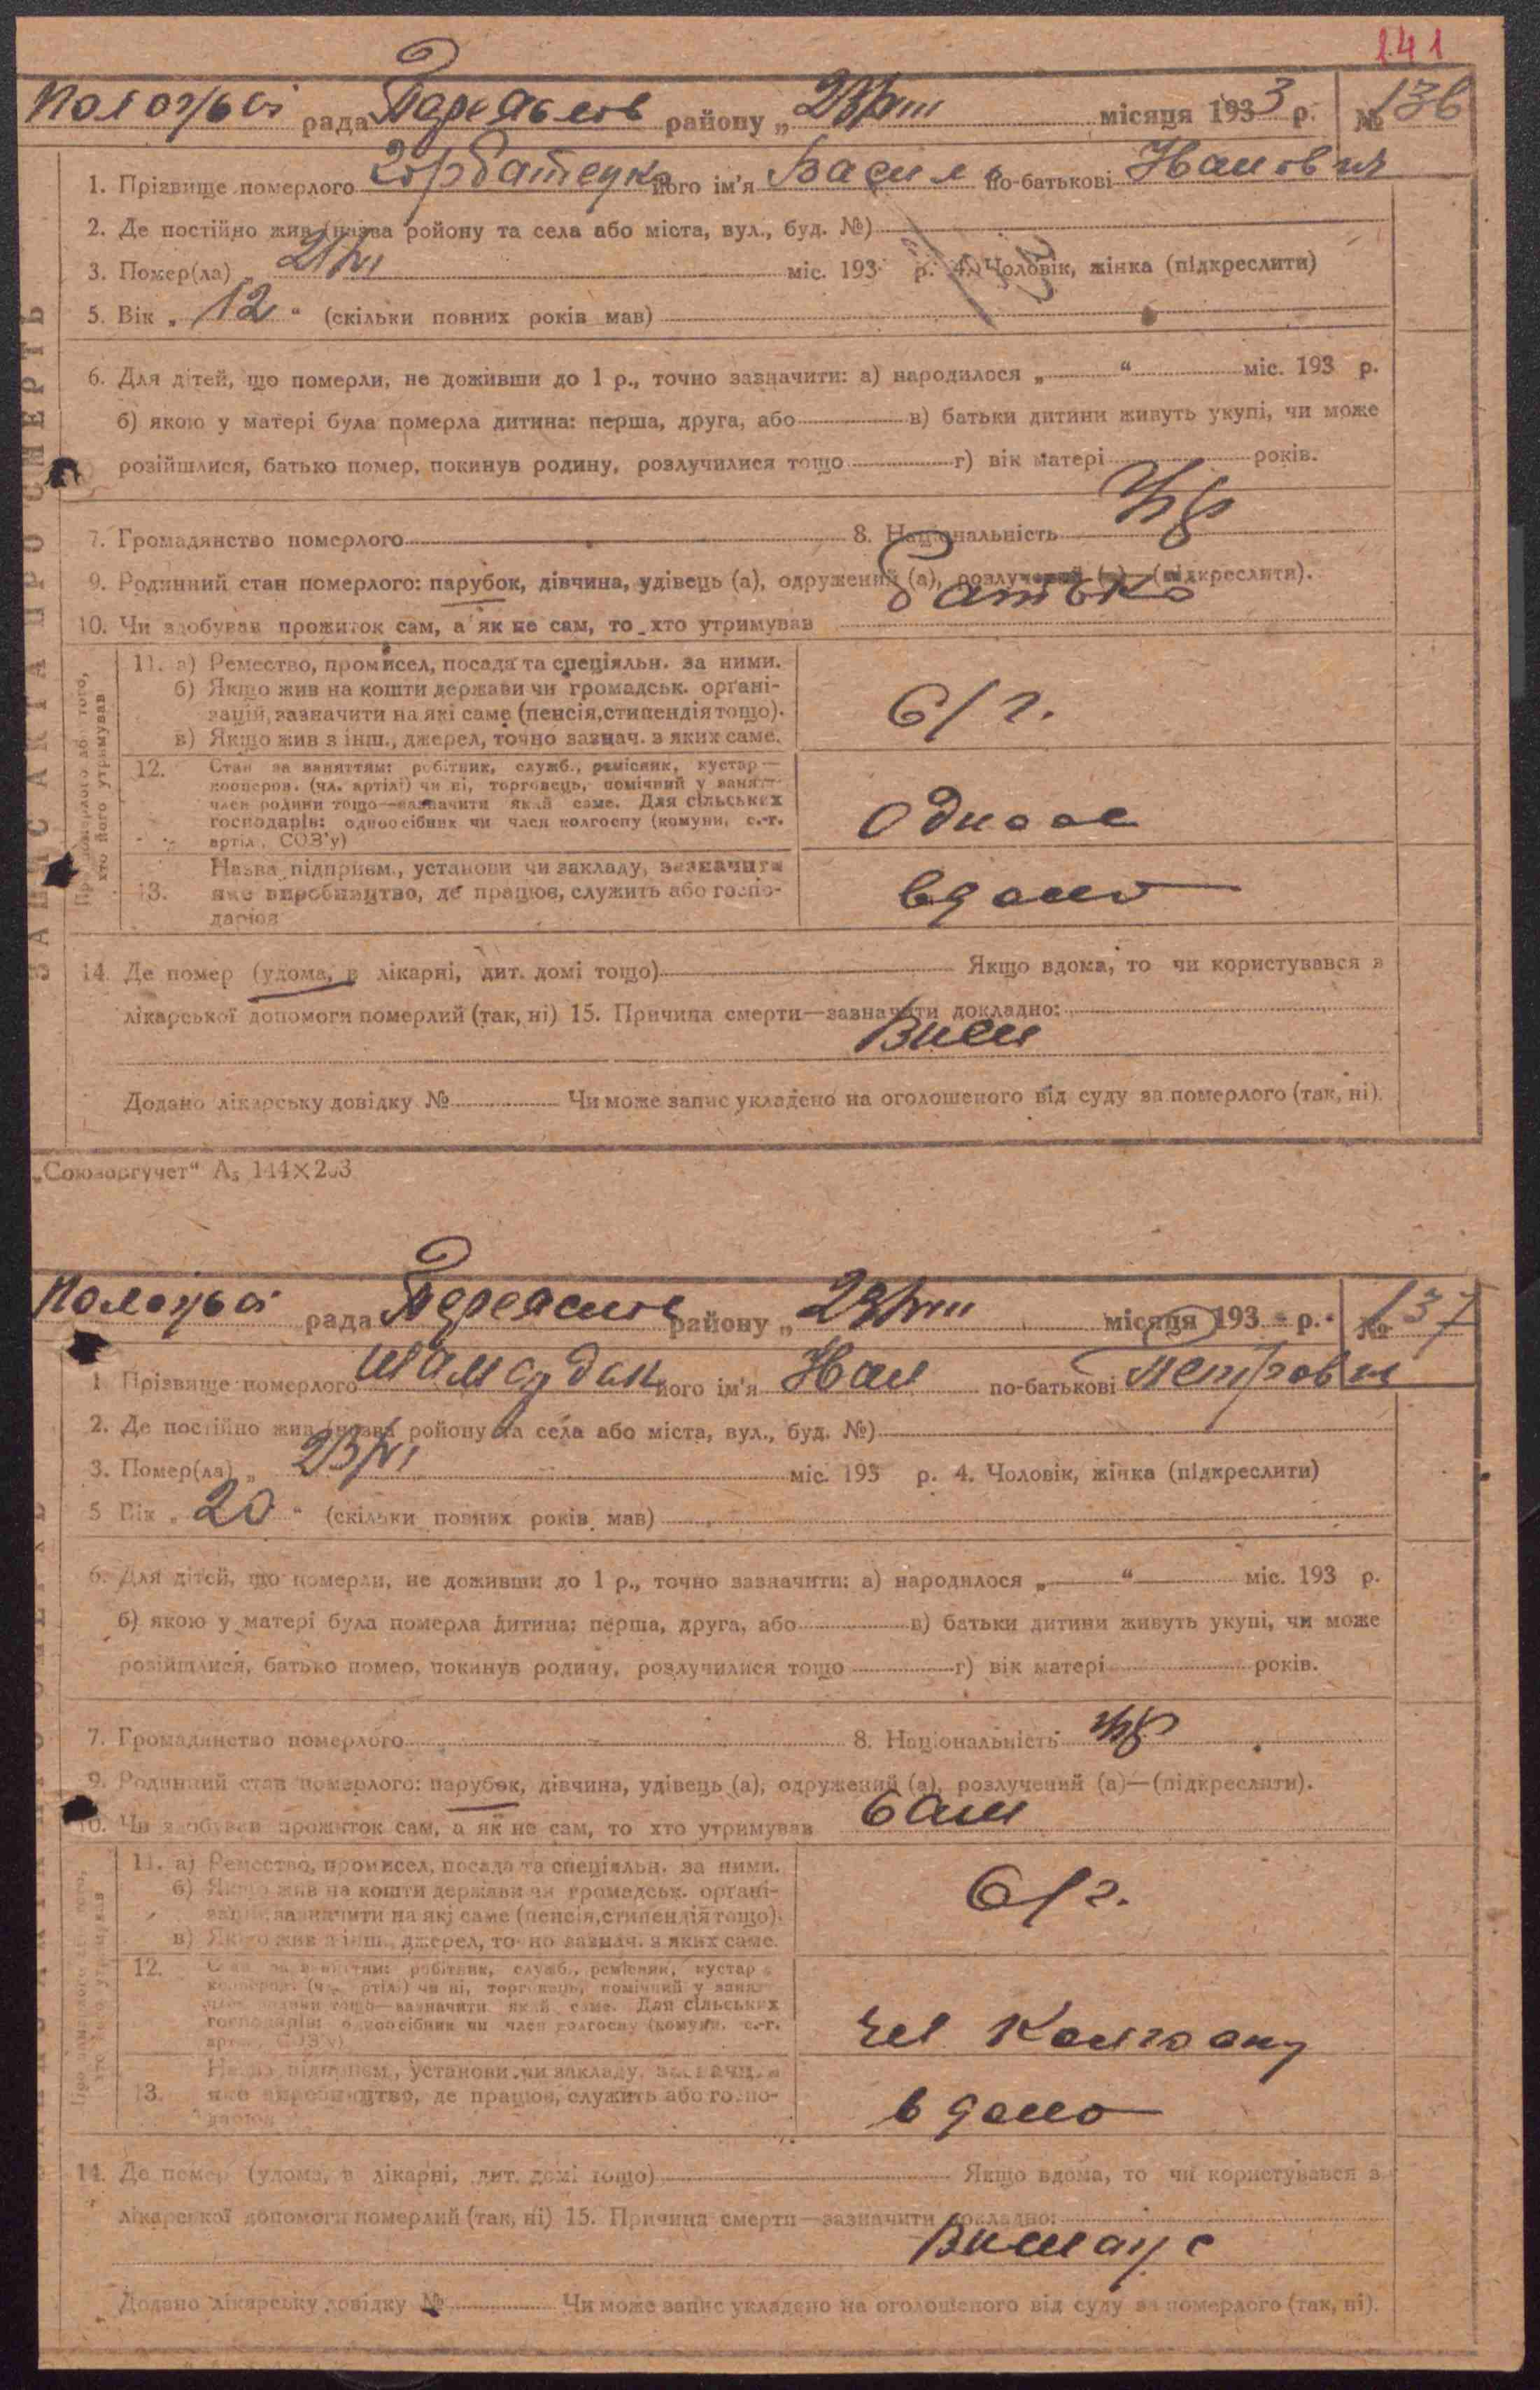 141
рада Переяслов району „ 23/VIII місяця 1933 р. № 136
1. Прізвище померлого Горбатенко його ім'я Василь по-батькові Иванович
2. Де постійно жив (назва ройону та села або міста, вул., буд. №)
3. Помер(ла) „ 21/VI міс. 193 р. 4. Чоловік, жінка (підкреслити)
5. Вік „ 12 “ (скільки повних років мав)
6. Для дітей, що померли, не доживши до 1 р., точно зазначити: а) народилося „ “ міс. 193 р.
б) якою у матері була померла дитина: перша, друга, або в) батьки дитини живуть укупі, чи може
розійшлися, батько помер, покинув родину, розлучилися тощо г) вік матері років.
7. Громадянство померлого 8. Національність Укр
9. Родинний стан померлого: парубок, дівчина, удівець (а), одружений (а), розлучений (а)—(підкреслити).
10. Чи здобував прожиток сам, а як не сам, то хто утримував батько
ЗАПИС АКТА ПРО СМЕРТЬ
Про померлого або того, хто його утримував
11. а) Ремество, промисел, посада та спеціяльн. за ними.
б) Якщо жив на кошти держави чи громадськ. орґані-
зацій, зазначити на які саме (пенсія, стипендія тощо).
в) Якщо жив з інш., джерел, точно зазнач. з яких саме.
С/Г.
12. Стан за заняттям: робітник, служб., ремісник, кустар—
кооперов. (чл. артілі) чи ні, торговець, помічний у занятт.
член родини тощо—зазначити який саме. Для сільських
господарів: одноосібник чи член колгоспу (комуни, с.-г.
артіл., СОЗ'у)
Одноос
13. Назва підприєм., установи чи закладу, зазначити
яке виробництво, де працює, служить або госпо-
дарює
вдома
14. Де помер (удома, в лікарні, дит. домі тощо) Якщо вдома, то чи користувався з
лікарської допомоги померлий (так, ні) 15. Причина смерти—зазначити докладно:
Додано лікарську довідку № Чи може запис укладено на оголошеного від суду за померлого (так, ні).
„Союзоргучет“ А₅ 144×203
рада Переяслов району „ 23/VIII місяця 193 р. № 137
1 Прізвище померлого його ім'я Иван по-батькові Петрович
2. Де постійно жив (назва ройону та села або міста, вул., буд. №)
3. Помер(ла) „ 23/VI міс. 193 р. 4. Чоловік, жінка (підкреслити)
5 Вік „ 20 “ (скільки повних років мав)
6. Для дітей, що померли, не доживши до 1 р., точно зазначити: а) народилося „ “ міс. 193 р.
б) якою у матері була померла дитина: перша, друга, або в) батьки дитини живуть укупі, чи може
розійшлися, батько помер, покинув родину, розлучилися тощо г) вік матері років.
7. Громадянство померлого 8. Національність Укр
9. Родинний стан померлого: парубок, дівчина, удівець (а), одружений (а), розлучений (а)—(підкреслити).
10. Чи здобував прожиток сам, а як не сам, то хто утримував сам
11. а) Ремество, промисел, посада та спеціяльн. за ними.
б) Якщо жив на кошти держави чи громадськ. орґані-
зацій, зазначити на які саме (пенсія, стипендія тощо).
в) Якщо жив з інш., джерел, точно зазнач. з яких саме.
С/Г.
12. Стан за заняттям: робітник, служб., ремісник, кустар
кооперов. (чл. артілі) чи ні, торговець, помічний у занят.
член родини тощо—зазначити який саме. Для сільських
господарів: одноосібник чи член колгоспу (комуни, с.-г.
артіл., СОЗ'у)
Чл Колгоспу
13. Назва підприєм., установи чи закладу, зазначити
яке виробництво, де працює, служить або госпо-
дарює
вдома
14. Де помер (удома, в лікарні, дит. домі тощо) Якщо вдома, то чи користувався з
лікарської допомоги померлий (так, ні) 15. Причина смерти—зазначити докладно:
Додано лікарську довідку № Чи може запис укладено на оголошеного від суду за померлого (так, ні).